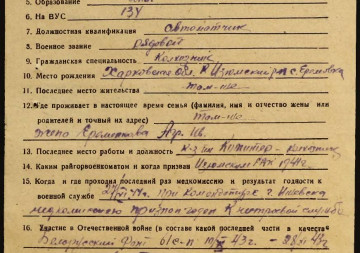 5. Образование
6. На ВУС 134
7. Должностная квалификация автоматчик
8. Военное звание рядовой
9. Гражданская специальность Колхозник
10. Место рождения Харьковская обл. Изюмский р-н с.
11. Последнее место жительства там-же
12. Где проживает в настоящее время семья (фамилия, имя и отчество жены или
родителей и точный их адрес) там-же
жена
13. Последнее место работы и должность к-з
14. Каким райгорвоенкоматом и когда призван Изюмским РВК 1941 г.
15. Когда и где проходил последний раз медкомиссию и результат годности к
военной службе при Комендатуре г.
медкомиссию признан годен К строевой службе
16. Участие в Отечественной войне (в составе какой последней части в качестве
Белорусский Фронт 43 г. -